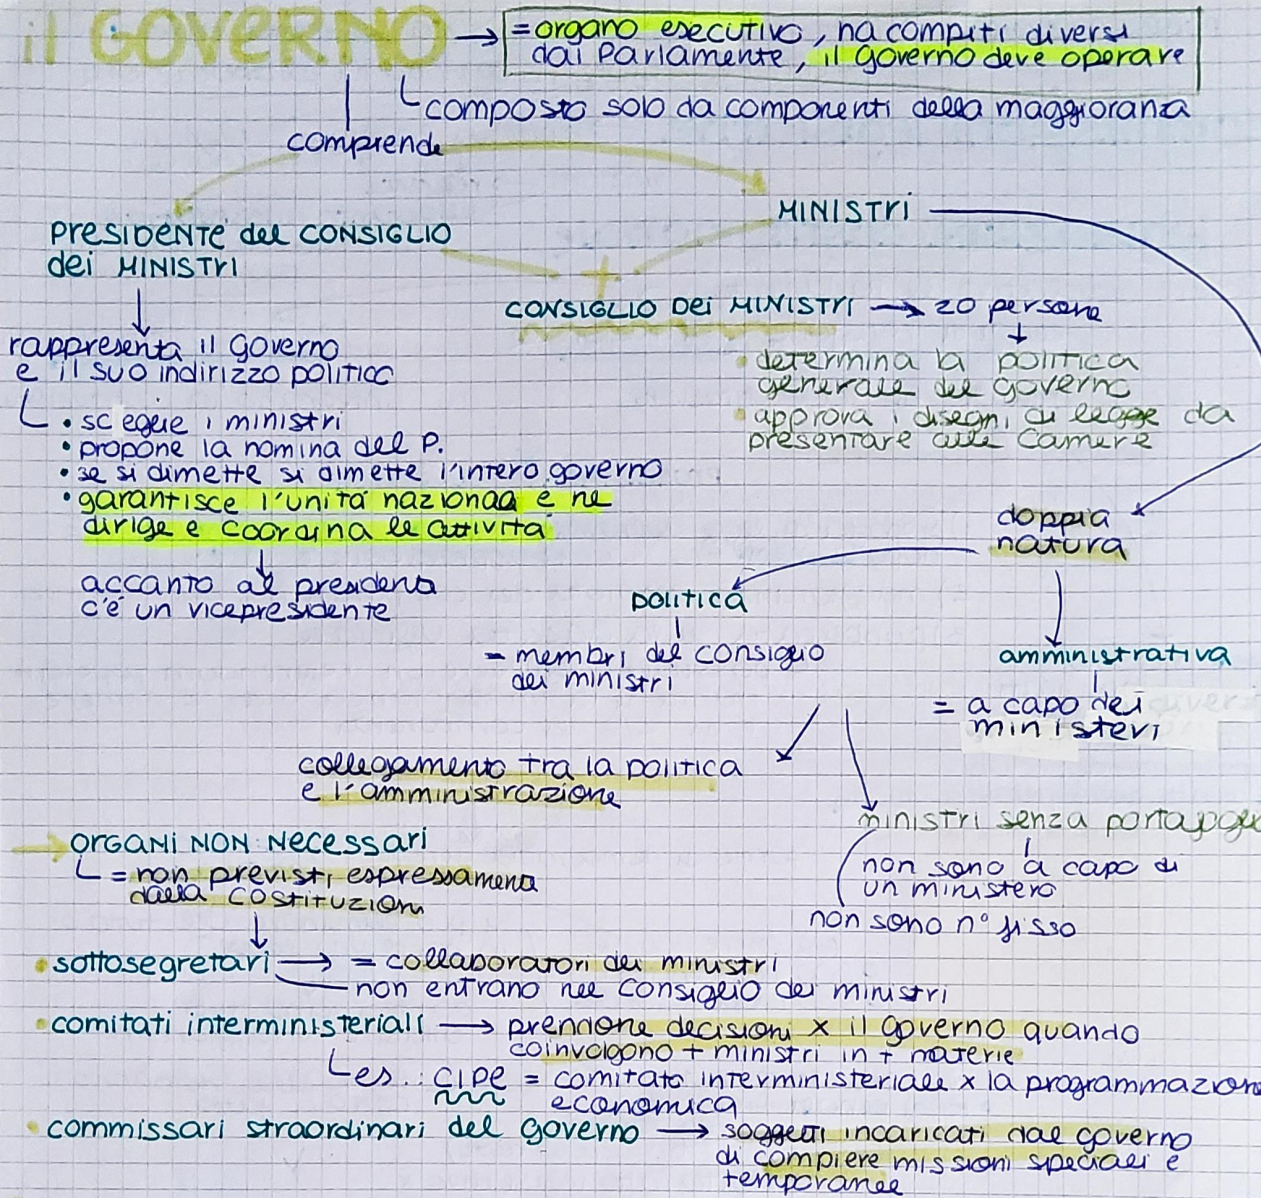 il GOVERNO → = organo esecutivo, ha compiti diversi
dal Parlamento, il governo deve operare
composto solo da componenti della maggioranza
comprende
PRESIDENTE del CONSIGLIO
dei MINISTRI
MINISTRI
+
CONSIGLIO DEI MINISTRI → 20 persone
rappresenta il Governo
e il suo indirizzo politico
• determina la politica
generale del governo
• approva i disegni di legge da
presentare alle Camere
• sceglie i ministri
• propone la nomina del P.
• se si dimette si dimette l'intero governo
• garantisce l'unità nazionale e ne
dirige e coordina le attività
accanto al presidente
c'è un vicepresidente
doppia
natura
politica
- membri del consiglio
dei ministri
amministrativa
= a capo dei
ministeri
collegamento tra la politica
e l'amministrazione
ministri senza portafogli
non sono a capo di
un ministero
non sono n° fisso
→ ORGANI NON NECESSARI
= non previsti espressamente
dalla COSTITUZIONE
• sottosegretari → = collaboratori dei ministri
non entrano nel Consiglio dei ministri
• comitati interministeriali → prendono decisioni x il governo quando
coinvolgono + ministri in + materie
es.: CIPE = comitato interministeriale x la programmazione
economica
• commissari straordinari del governo → soggetti incaricati dal governo
di compiere missioni speciali e
temporanee